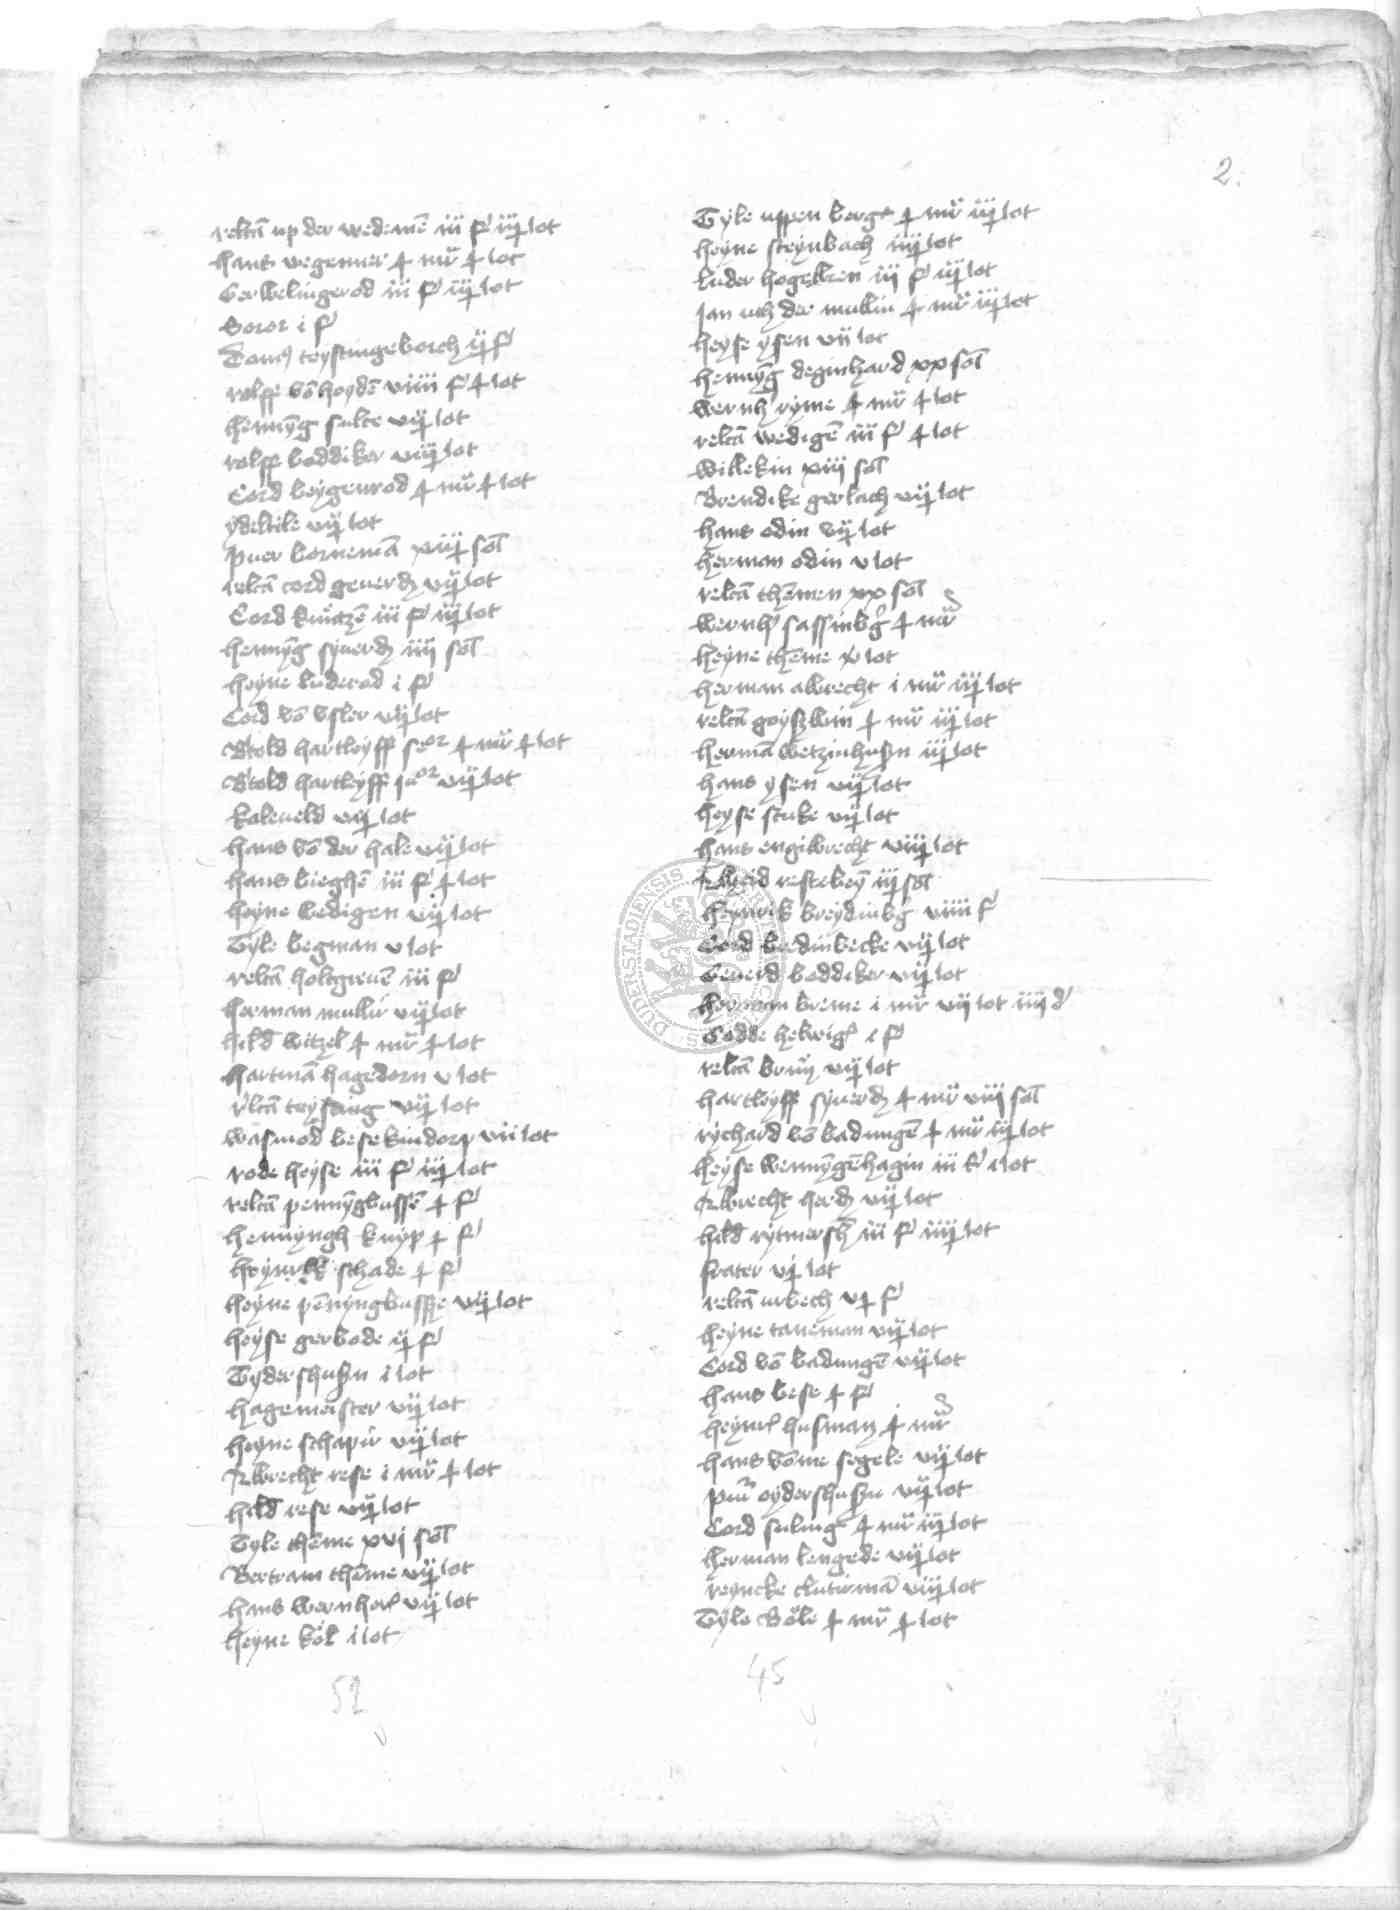 2.
relicta up der wedemē iii f iij lot
hans wegener ½ mr ½ lot
Gerwelingerod iii f iij lot
Soror i f
teystingeborch ij f
rolff vō hoydē viiii f ½ lot
hennyg sulte vij lot
rolff boddiker viij lot
Cord beygenrod ½ mr ½ lot
ydeltile vij lot
puer bornemā xiij sol
relcā cord geuerdz vij lot
Cord iii f iij lot
hennyg syuerdz iiij sol
heyne luderod i f
Cord vō vsler vij lot
Btold hartleyff seor ½ mr ½ lot
Btold hartleyff juor vij lot
kaleueld vij lot
hans vō der hale vij lot
hans bieghē iii f ½ lot
heyne wedigen vij lot
Tyle begman v lot
relcā holtgreuē iii f
herman mullir vij lot
hild witzel ½ mr ½ lot
hartmā hagedorn v lot
rlcā teysting vij lot
wasmod besekindorp vii lot
rode heyse iii f iij lot
relcā pennygbussē ½ f
hennyngh knyp ½ f
heynrik schade ½ f
heyne pēnyngbussze vij lot
heyse gerbode ij f
Tydershuszn i lot
hagemeister vij lot
heyne schapir vij lot
Albrecht rese i mr ½ lot
hild rese vij lot
Tyle thēme xvj sol
Bertram thēme vij lot
hans wernher vij lot
heyne kōl i lot
52
Tyle uppen berge ½ mr iij lot
heyne steynbach iiij lot
luder hogreben iij f iij lot
Jan uß der mullin ½ mr iij lot
heyse ysen vii lot
hennyg deginhard xx sol
wernh ryme ½ mr ½ lot
relcā wedigē iii f ½ lot
willekin xiij sol
Brendike gerlach vij lot
hans odin vij lot
herman odin v lot
relcā thēmen xx sol
wernh sassinbg ½ mr
heyne thēme x lot
herman albrecht i mr iij lot
relcā ½ mr iij lot
hermā wetzinhuszn iij lot
hans ysen vij lot
heyse stuke vij lot
hans engilbrecht viij lot
restebeyn iij sol
heynrik breydinbg viiii f
Cord vij lot
Geuerd boddiker vij lot
herman breme i mr vij lot iiij d
Godde helwig i f
relcā brun vij lot
hartleyff syuerdz ½ mr viij sol
rychard vō badungē ½ mr iij lot
heyse wennygēhagin iii f i lot
Albrecht herdz vij lot
hild rytmersh iii f iiij lot
frater vj lot
relcā urbech vj f
heyne taneman vij lot
Cord vō badungē vij lot
hans bese ½ f
heynr husman ½ mr
hans vōme segele vij lot
oydershuszn vij lot
Cord suling ½ mr iij lot
herman lengede vij lot
reyncke clutirmā viij lot
Tyle ½ mr ½ lot
45